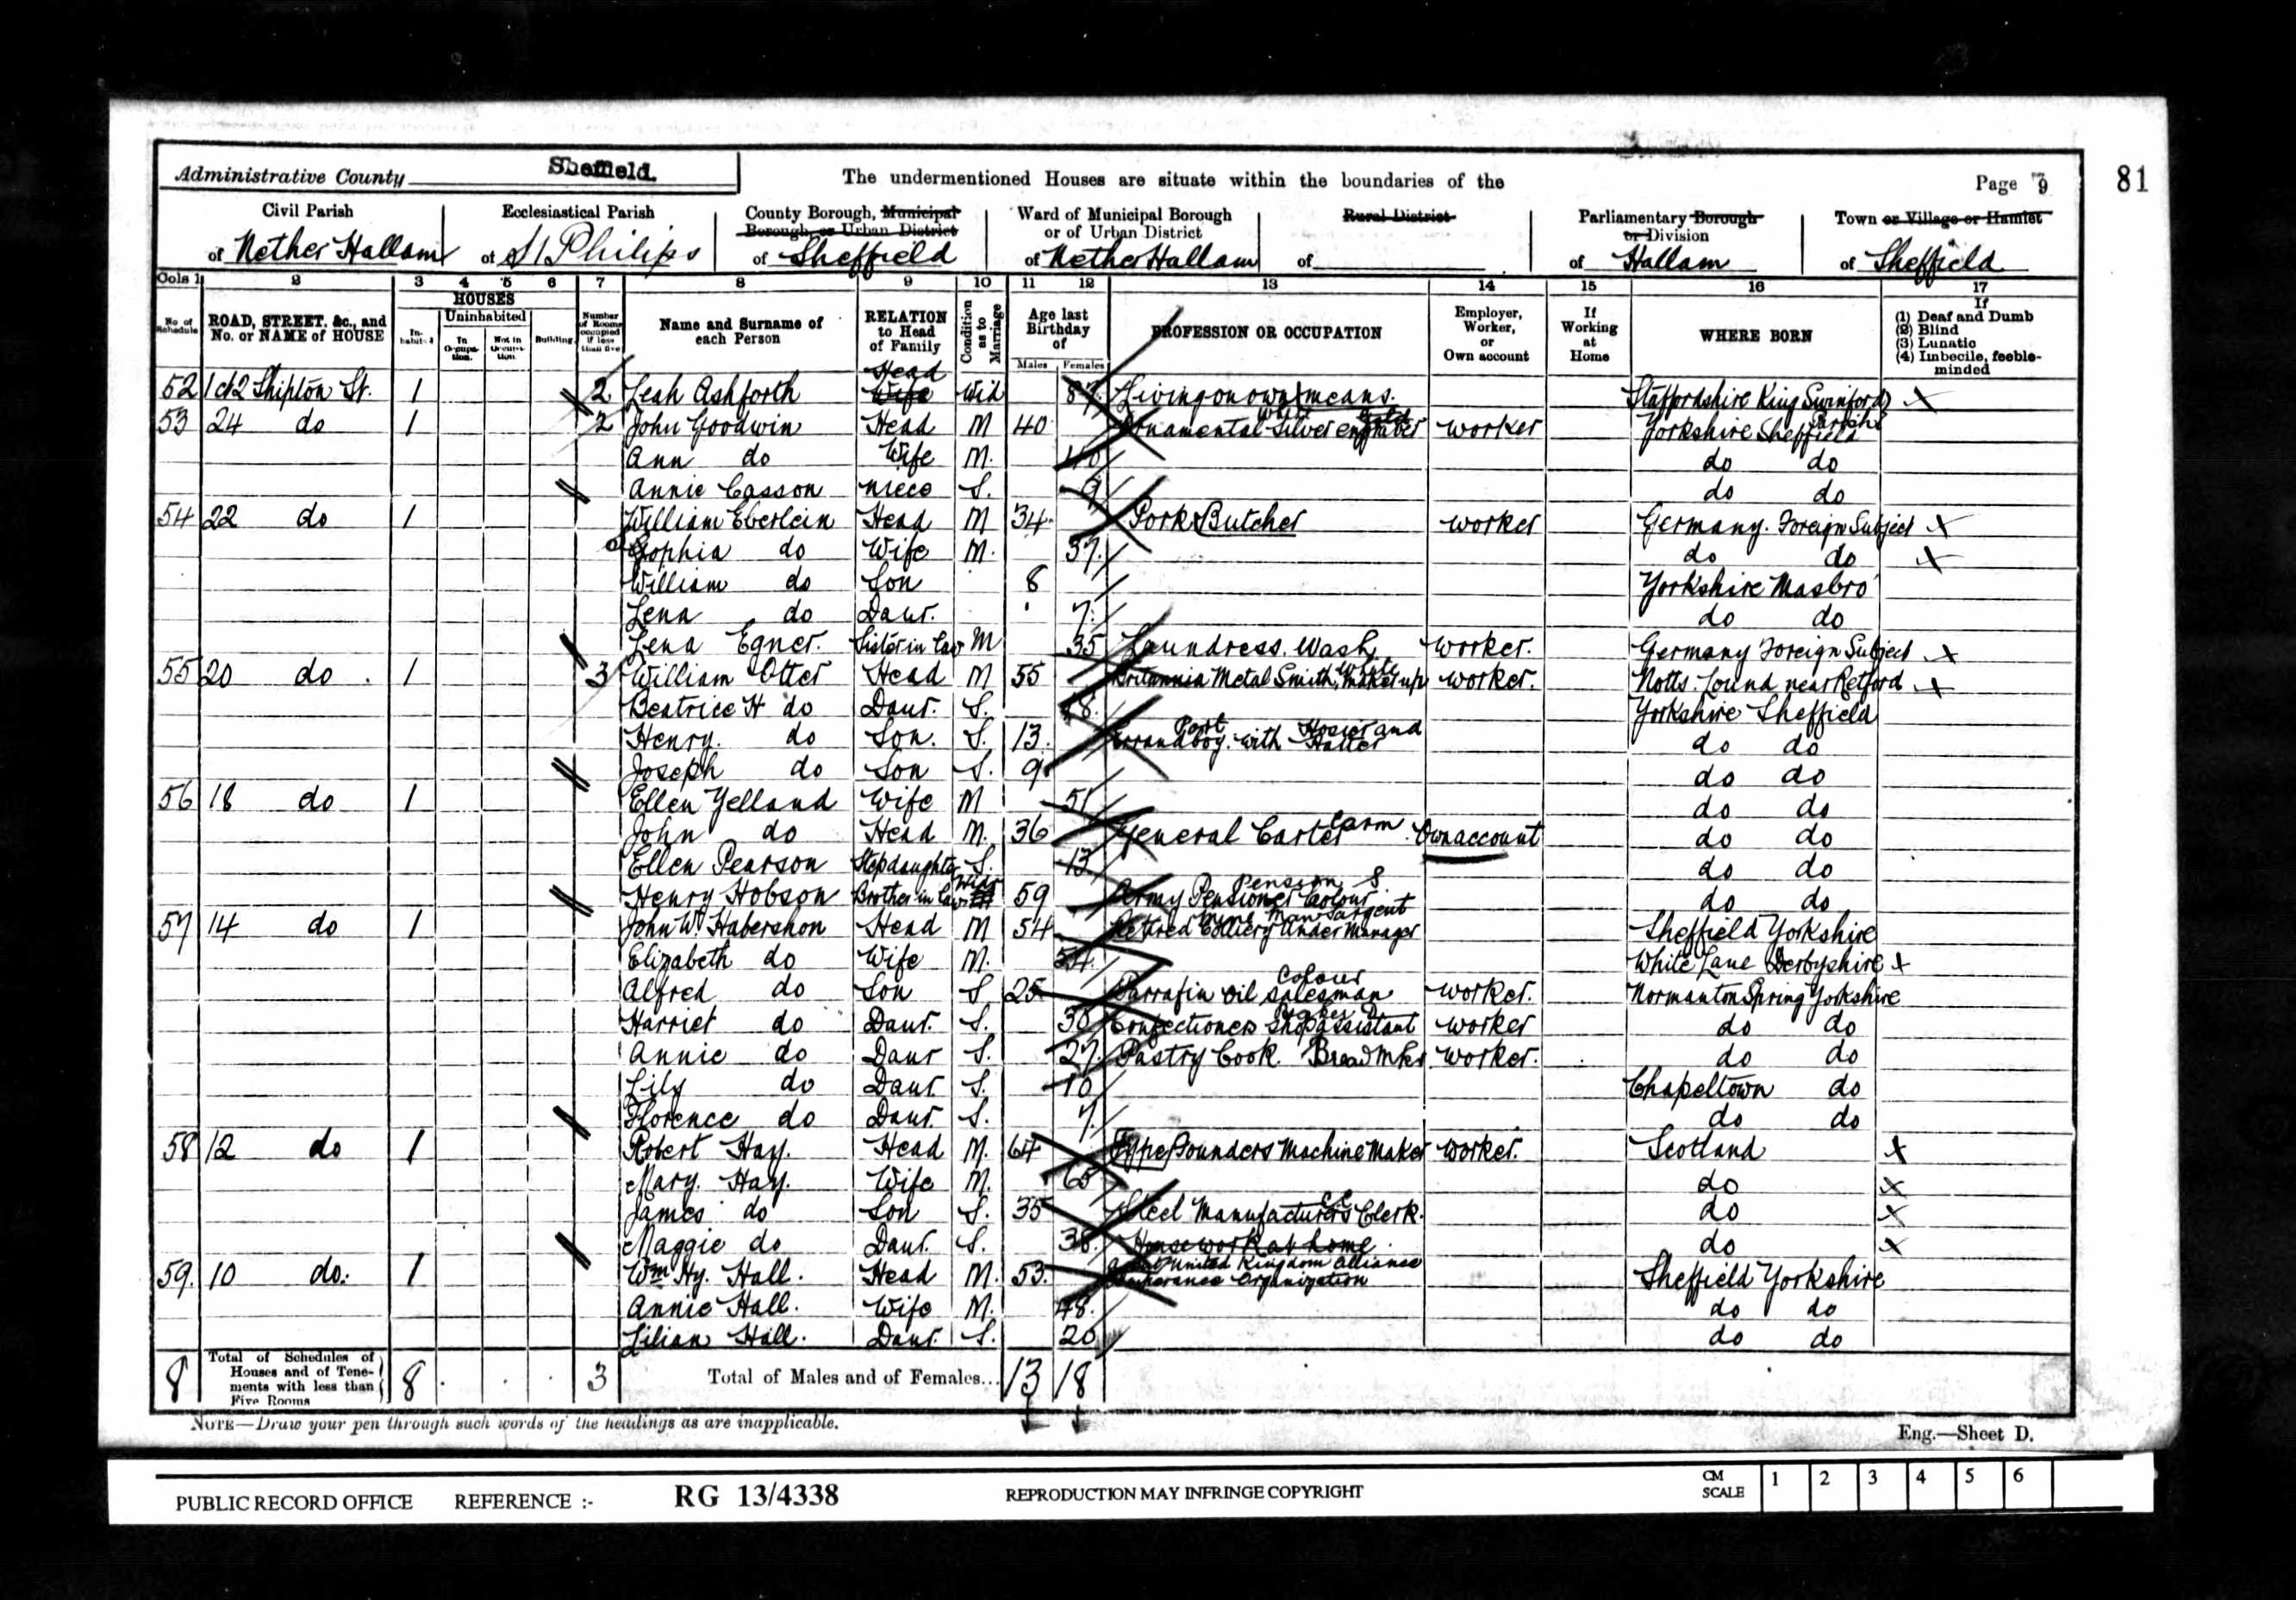 Administrative County Sheffield. The undermentioned Houses are situate within the boundaries of the Page 9 81
Civil Parish of Nether Hallam
Ecclesiastical Parish of St Philips
County Borough, Municipal Borough, or Urban District of Sheffield
Ward of Municipal Borough or of Urban District of Nether Hallam
Rural District of
Parliamentary Borough or Division of Hallam
Town or Village or Hamlet of Sheffield
Cols 1 2 3 4 5 6 7 8 9 10 11 12 13 14 15 16 17
No of Schedule
ROAD, STREET, &c., and No. or NAME of HOUSE
HOUSES
Inhabited
Uninhabited
In Occupation.
Not in Occupation.
Building
Number of Rooms occupied if less than five
Name and Surname of each Person
RELATION to Head of Family
Condition as to Marriage
Age last Birthday of
Males Females
PROFESSION OR OCCUPATION
Employer, Worker, or Own account
If Working at Home
WHERE BORN
If
(1) Deaf and Dumb
(2) Blind
(3) Lunatic
(4) Imbecile, feeble-minded
Head
52 Shipton St. 1 2 Leah Ashforth Wife Wid 87 Living on own means. Staffordshire King Swinford
White Gold Parish
53 24 do 1 2 John Goodwin Head M 40 Ornamental Silver engraver worker Yorkshire Sheffield
Ann do Wife M. 40 do do
Annie Casson niece S. 9 do do
54 22 do 1 William Eberlein Head M 34 Pork Butcher worker Germany. Foreign Subject
Sophia do Wife M. 37. do do
William do Son 8 Yorkshire Masbro
Lena do Daur. 7. do do
Lena Egner. Sister in law M 35 Laundress. Wash worker. Germany Foreign Subject
55 20 do 1 3 William Otter Head M 55 Britannia Metal Smith, White maker up worker. Notts. Lound near Retford
Beatrice H do Daur. S. 18. Yorkshire Sheffield
Port Hosier and
Henry. do Son. S. 13. Errand boy. with Hatter do do
Joseph do Son S. 9 do do
56 18 do 1 Ellen Yelland Wife M 51 do do
John do Head M. 36 General Carter Carm Own account do do
Ellen Pearson Stepdaughter S. 13 do do
Pension S.
Henry Hobson Brother in law Widr 59 Army Pensioner Colour Sargent do do
Mine Man
57 14 do 1 John Wm Habershon Head M 54 Retired Colliery Under Manager Sheffield Yorkshire
Elizabeth do Wife M. 54. White Lane Derbyshire
Colour
Alfred do Son S. 25 Parrafin oil salesman worker. Normanton Spring Yorkshire
Harriet do Daur. S. 30 Confectioners shop assistant worker do do
Annie do Daur S. 27. Pastry Cook. Bread Mkr worker. do do
Lily do Daur. S. 10 Chapeltown do
Florence do Daur S. 7. do do
58 12 do 1 Robert Hay. Head M. 64 Type Founders Machine Maker worker. Scotland
Mary. Hay. Wife M. 65 do
James do Son S. 35 Steel Manufacturers Clerk. do
Maggie do Daur. S. 38. House work at home. do
59. 10 do. 1 Wm Hy. Hall. Head M. 53. Agent United Kingdom Alliance Temperance Organization Sheffield Yorkshire
Annie Hall. Wife M. 48. do do
Lilian Hall. Daur. S. 20 do do
8 Total of Schedules of Houses and of Tenements with less than Five Rooms 8 3 Total of Males and of Females... 13 18
NOTE—Draw your pen through such words of the headings as are inapplicable. Eng.—Sheet D.
PUBLIC RECORD OFFICE REFERENCE :- RG 13/4338 REPRODUCTION MAY INFRINGE COPYRIGHT CM SCALE 1 2 3 4 5 6